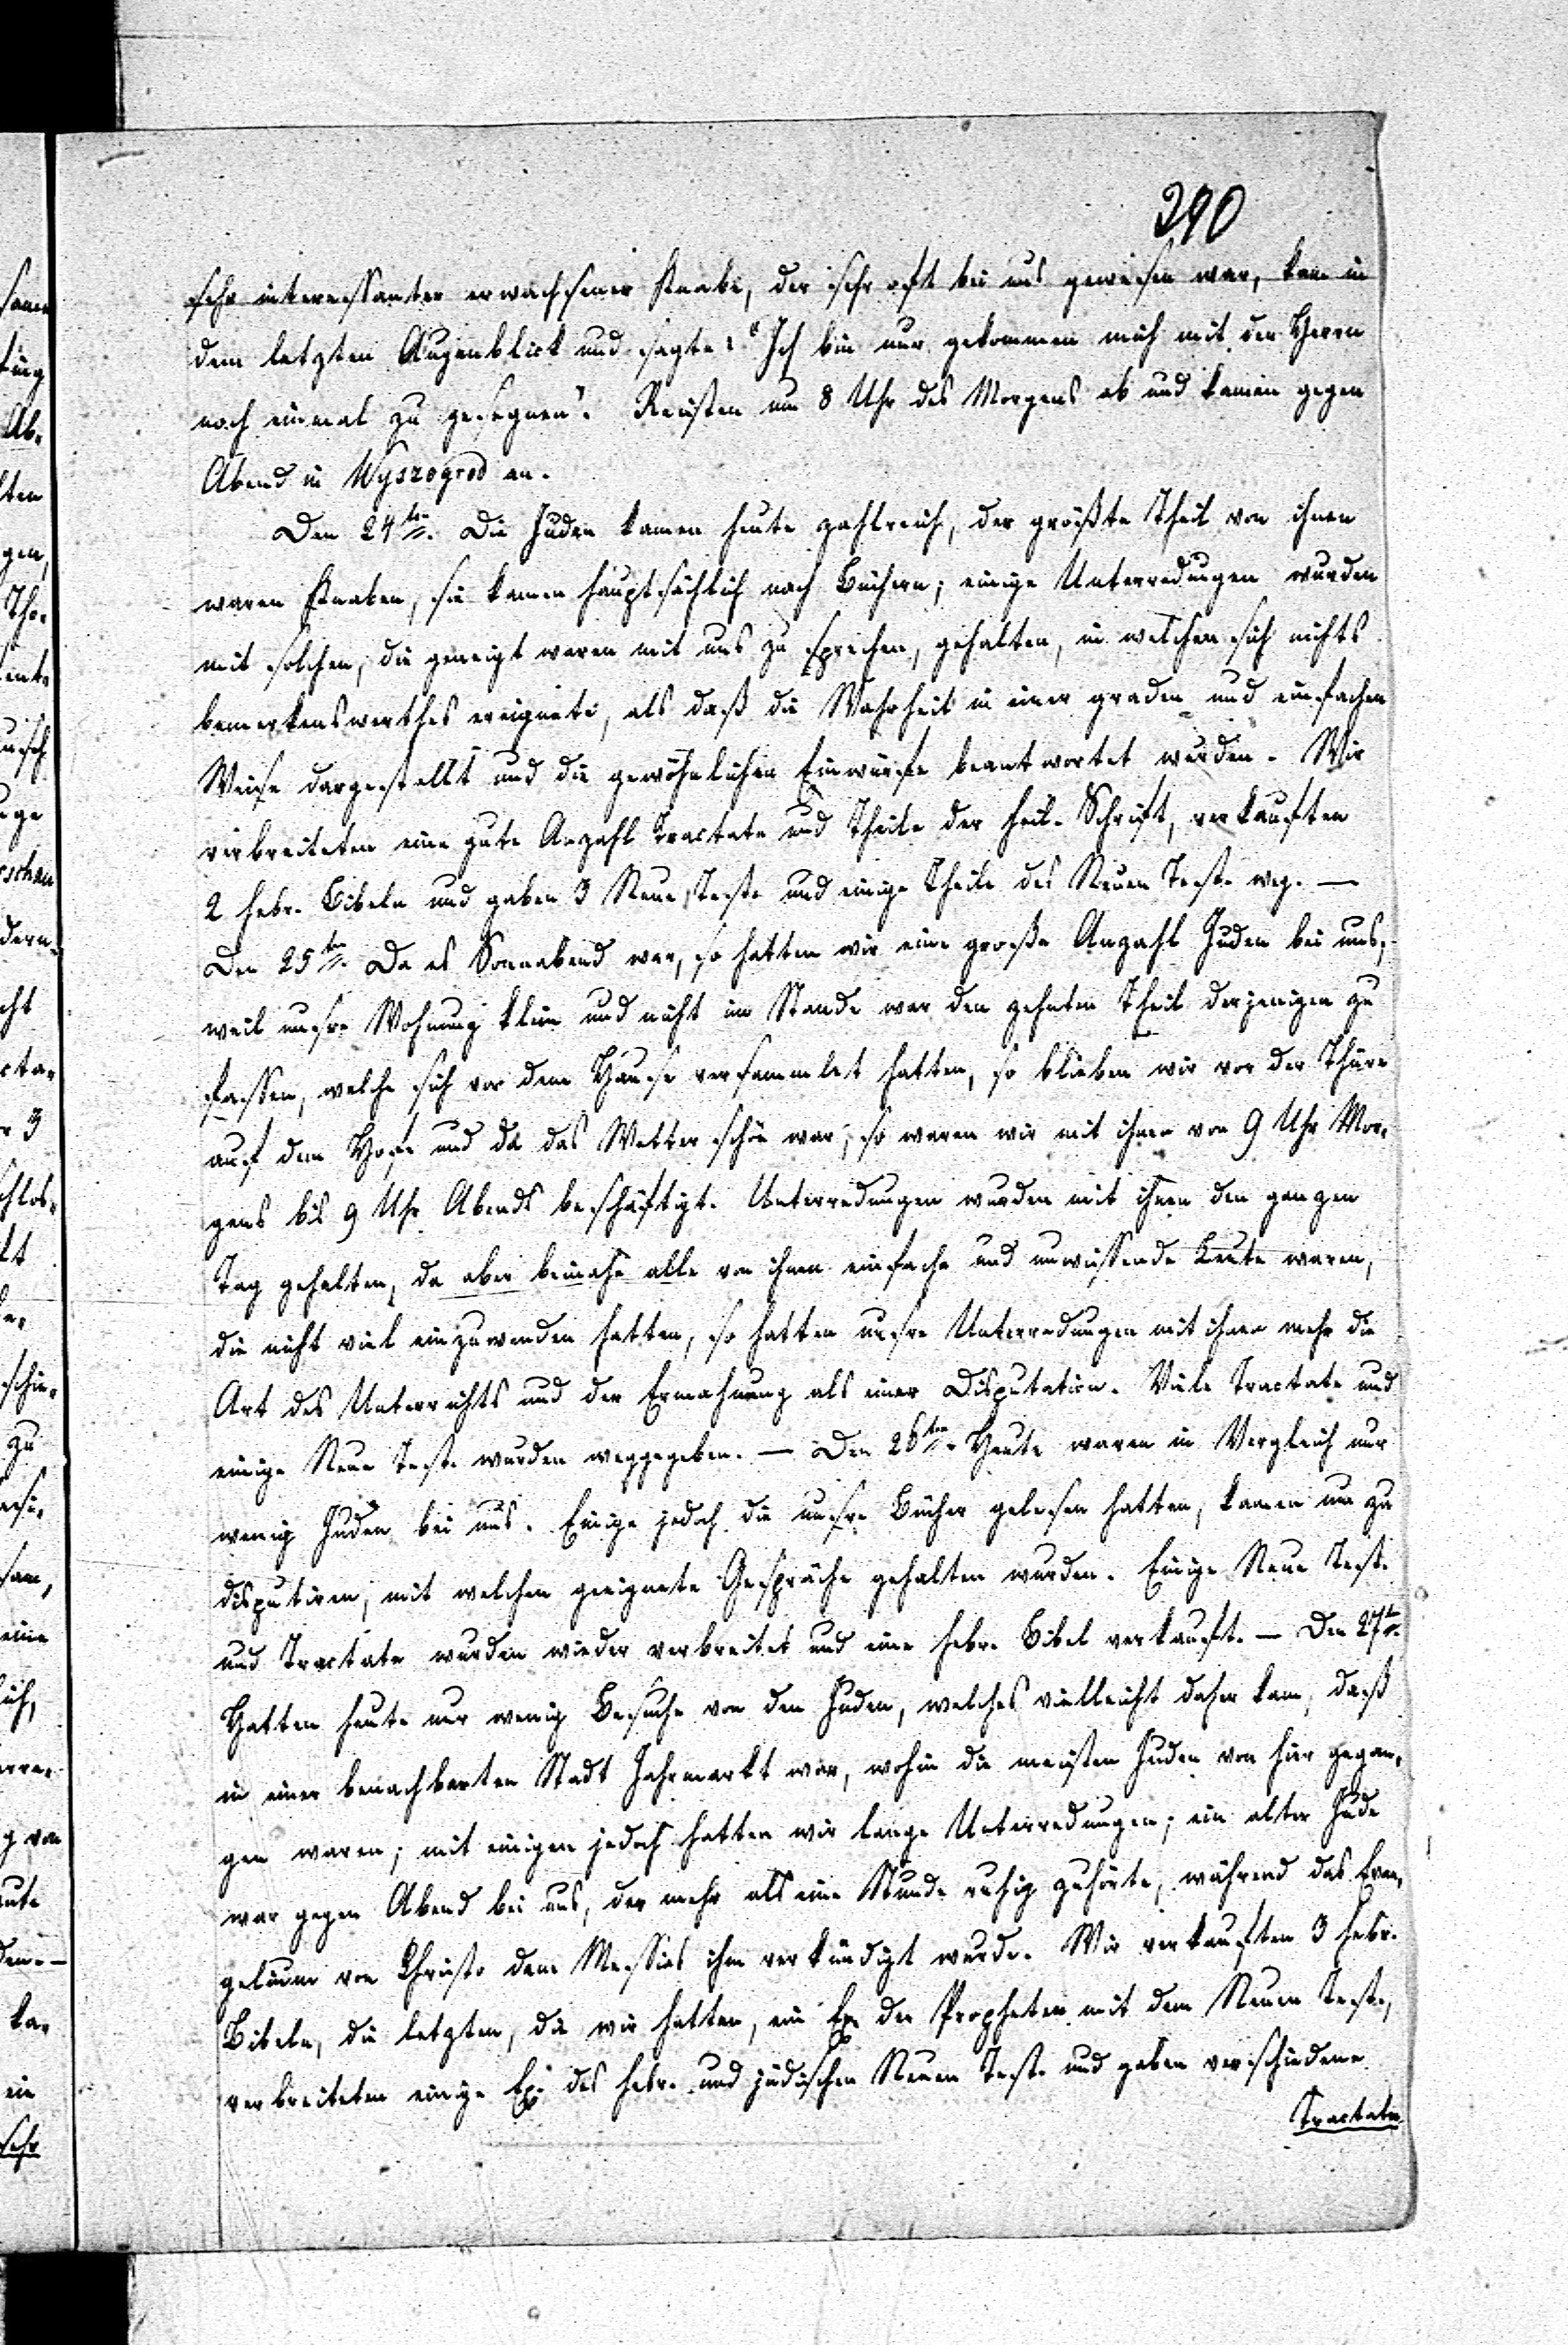 290
sehr interessanter erwachsener Knabe, der sehr oft bei uns gewesen war, kam in
dem letzten Augenblick und sagte: "Ich bin nur gekommen mich mit den Herrn
noch einmal zu gesegnen". Reisten um 8 Uhr des Morgens ab und kamen gegen
Abend in Wyszogrod an.
Den 24ten. Die Juden kamen heute zahlreich, der größte Theil von ihnen
waren Knaben, sie kamen hauptsächlich nach Büchern; einige Unterredungen wurden
mit solchen, die geneigt waren mit uns zu sprechen, gehalten, in welchen sich nichts
bemerkenswerthes ereignete, als daß die Wahrheit in einer graden und einfachen
Weise dargestellt und die gewöhnlichen Einwürfe beantwortet wurden. Wir
verbreiteten eine gute Anzahl Tractate und Theile der heil. Schrift, verkauften
2 hebr. Bibeln und gaben 3 Neue Test. und einige Theile des Neuen Test. weg. —
Den 25ten. Da es Sonnabend war, so hatten wir eine große Anzahl Juden bei uns,
weil unsre Wohnung klein und nicht im Stande war den zehnten Theil derjenigen zu
fassen, welche sich vor dem Hause versammlet hatten, so blieben wir vor der Thüre
auf dem Hofe und da das Wetter schön war, so waren wir mit ihnen von 9 Uhr Mor-
gens bis 9 Uhr Abends beschäftigt. Unterredungen wurden mit ihnen den ganzen
Tag gehalten, da aber beinahe alle von ihnen einfache und unwissende Leute waren,
die nicht viel einzuwenden hatten, so hatten unsre Unterredungen mit ihnen mehr die
Art des Unterrichts und der Ermahnung als einer Disputation. Viele Tractate und
einige Neue Test. wurden weggegeben. — Den 26ten. Heute waren in Vergleich nur
wenig Juden bei uns. Einige jedoch die unsre Bücher gelesen hatten, kamen um zu
disputiren, mit welchen geeignete Gespräche gehalten wurden. Einige Neue Test.
und Tractate wurden wieder verbreitet und eine hebr. Bibel verkauft. — Den 27t.
Hatten heute nur wenig Besuche von den Juden, welches vielleicht daher kam, daß
in einer benachbarten Stadt Jahrmarkt war, wohin die meisten Juden von hier gegan-
gen waren; mit einigen jedoch hatten wir lange Unterredungen; ein alter Jude
war gegen Abend bei uns, der mehr als eine Stunde ruhig zuhörte, während das Evan-
gelium von Christo dem Messias ihm verkündigt wurde. Wir verkauften 3 hebr.
Bibeln, die letzten, die wir hatten, ein Ex. der Propheten mit dem Neuen Test.,
verbreiteten einige Ex. des hebr. und jüdischen Neuen Test. und gaben verschiedene
Tractate